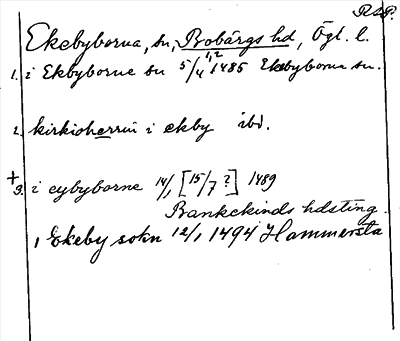 RAP.
Ekebyborna, sn, Bobärgs hd, Ögl. l.
1. i Ekbyborne sn 5/4 1485 Ekebyborna sn.
2. kirkioherrin i ekby ibd.
+
3. i eybyborne 14/1 [15/7?] 1489
Bankekinds hdsting.
1 Ekeby sokn 12/1 1494 Hammersta